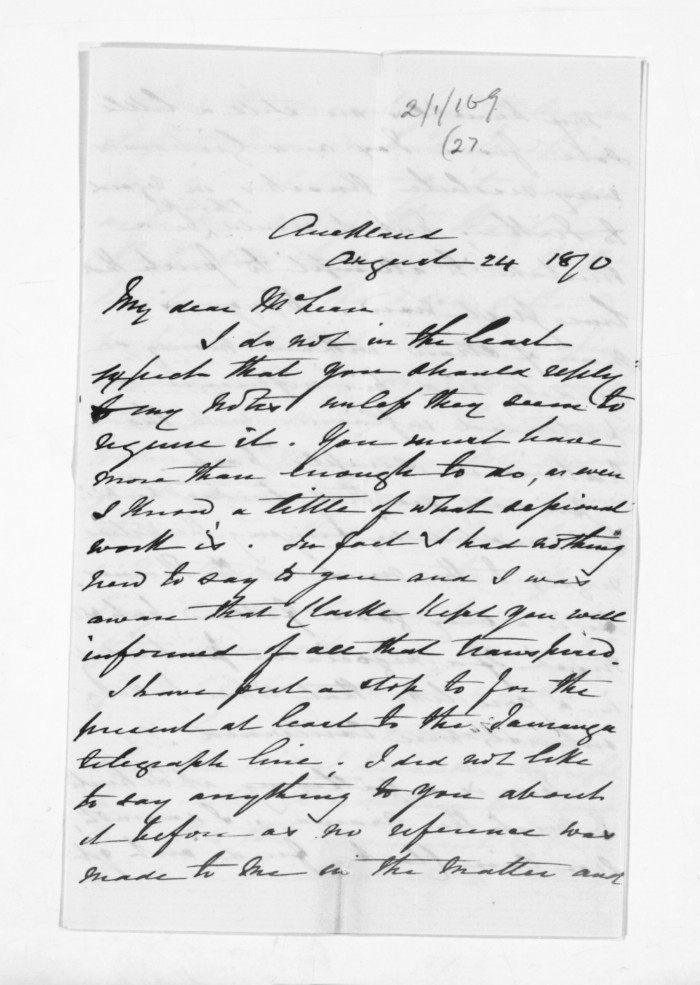 2/1/169
(27.
Auckland
August 24 1870
My dear McLean
I do not in the least
expect that you should reply
to my notes unless they seem to
require it. You must have
more than enough to do, as even
I know a little of what
work is. In fact I had nothing
new to say to you and I was
aware that Clarke kept you well
informed of all that transpired.
I have put a stop to for the
present at least to the Tauranga
telegraph line. I did not like
to say anything to you about
it before as no reference was
made to me in the matter and